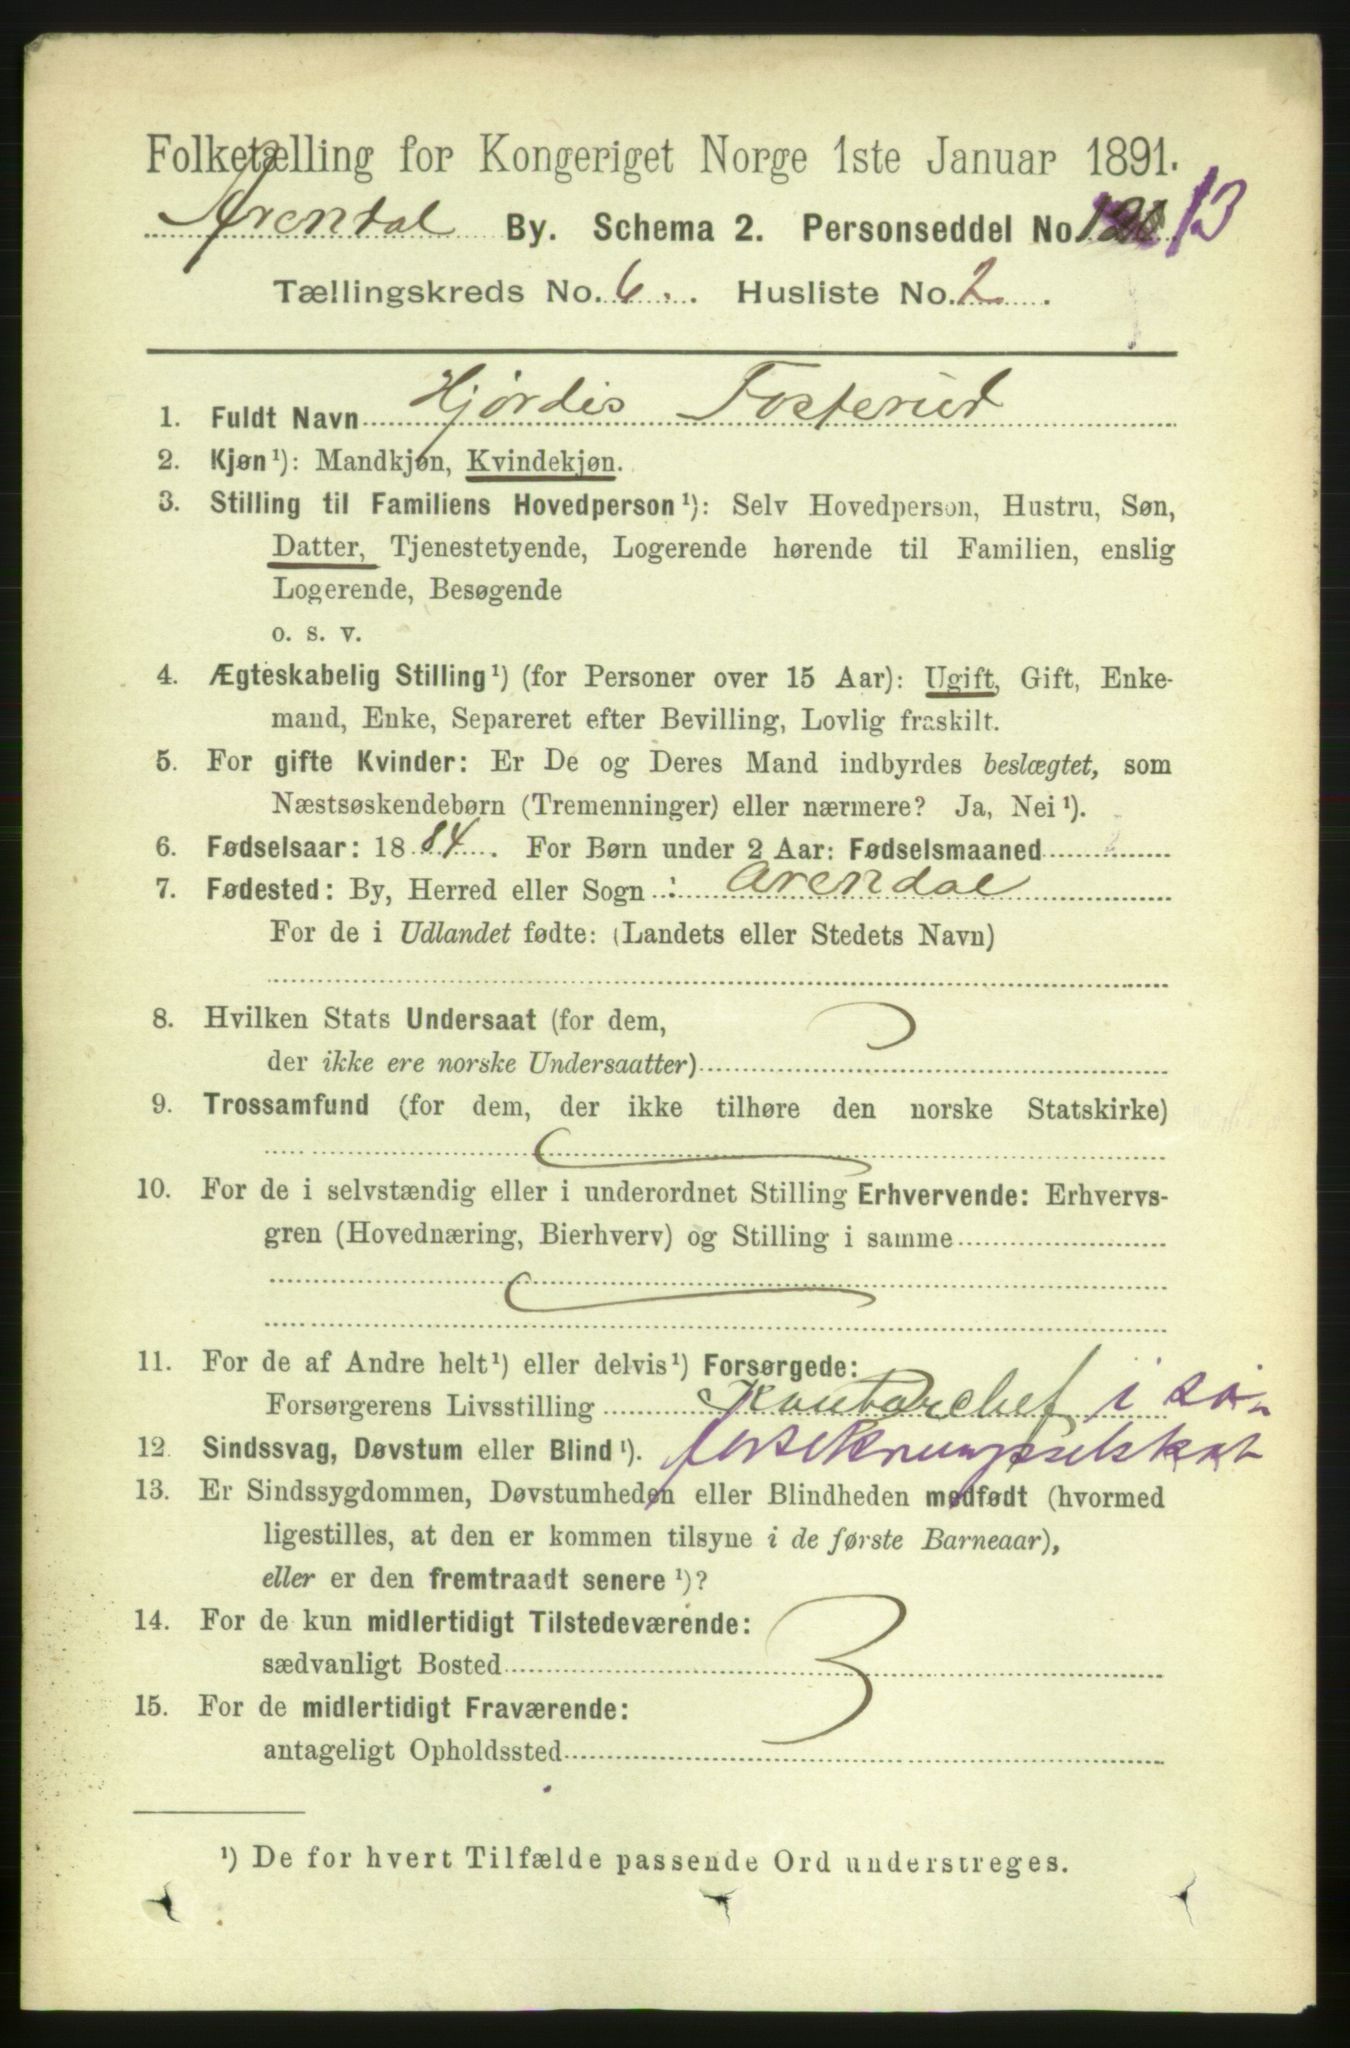 Folketælling for Kongeriget Norge 1ste Januar 1891.
Arendal By. Schema 2. Personseddel No. 13
Tællingskreds No. 6. Husliste No. 2.
1. Fuldt Navn Hjördis Fosterud
2. Kjøn¹): Mandkjøn, Kvindekjøn.
3. Stilling til Familiens Hovedperson¹): Selv Hovedperson, Hustru, Søn,
Datter, Tjenestetyende, Logerende hørende til Familien, enslig
Logerende, Besøgende
o. s. v.
4. Ægteskabelig Stilling¹) (for Personer over 15 Aar): Ugift, Gift, Enke-
mand, Enke, Separeret efter Bevilling, Lovlig fraskilt.
5. For gifte Kvinder: Er De og Deres Mand indbyrdes beslægtet, som
Næstsøskendebørn (Tremenninger) eller nærmere? Ja, Nei¹).
6. Fødselsaar: 1884. For Børn under 2 Aar: Fødselsmaaned
7. Fødested: By, Herred eller Sogn: Arendal
For de i Udlandet fødte: (Landets eller Stedets Navn)
8. Hvilken Stats Undersaat (for dem,
der ikke ere norske Undersaatter)
9. Trossamfund (for dem, der ikke tilhøre den norske Statskirke)
10. For de i selvstændig eller i underordnet Stilling Erhvervende: Erhvervs-
gren (Hovednæring, Bierhverv) og Stilling i samme
11. For de af Andre helt¹) eller delvis¹) Forsørgede:
Forsørgerens Livsstilling Kontorchef i sö-
12. Sindssvag, Døvstum eller Blind¹). forsikringsselskab
13. Er Sindssygdommen, Døvstumheden eller Blindheden medfødt (hvormed
ligestilles, at den er kommen tilsyne i de første Barneaar),
eller er den fremtraadt senere¹)?
14. For de kun midlertidigt Tilstedeværende:
sædvanligt Bosted
15. For de midlertidigt Fraværende:
antageligt Opholdssted
¹) De for hvert Tilfælde passende Ord understreges.